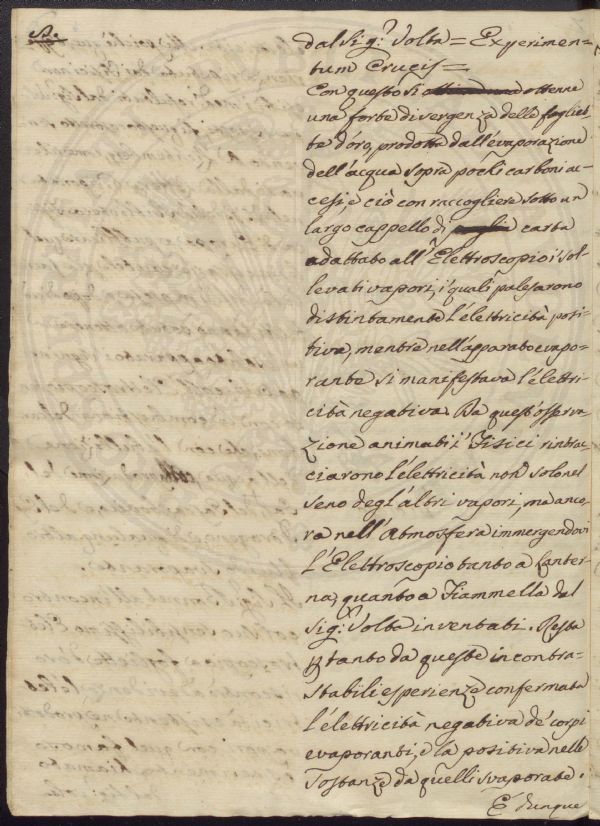 dal Sig.r Volta = Experimen-
tum Crucis =
Con questo si ottenne
una forte divergenza delle fogliet-
te d'oro, prodotta dall'evaporazione
dell'acqua sopra pochi carboni ac-
cesi, e ciò con raccogliere sotto un
largo cappello di carta
adattato all'Elettroscopio i sol-
levati vapori, i quali palesarono
distintamente l'elettricità posi-
tiva, mentre nell'apparato evapo-
rante si manifestava l'elettri-
cità negativa. Da quest'osserva-
zione animati i Fisici rintrac-
ciarono l'elettricità non solo nel
seno degl'altri vapori, ma anco-
ra nell'Atmosfera immergendovi
l'Elettroscopio tanto a Lanter-
na, quanto a Fiammella dal
Sig.r Volta inventati. Resta
ptanto da queste incontra-
stabili esperienze confermata
l'elettricità negativa de' corpi
evaporanti, e la positiva nelle
sostanze da quelli svaporate.
È dunque